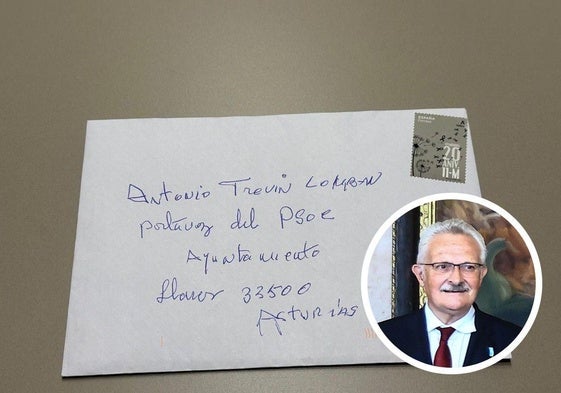 ESPAÑA
20
ANIV
11-M
Antonio Trevín Lombán
portavoz del PSOE
Ayuntamiento
Llanes 33500
Asturias